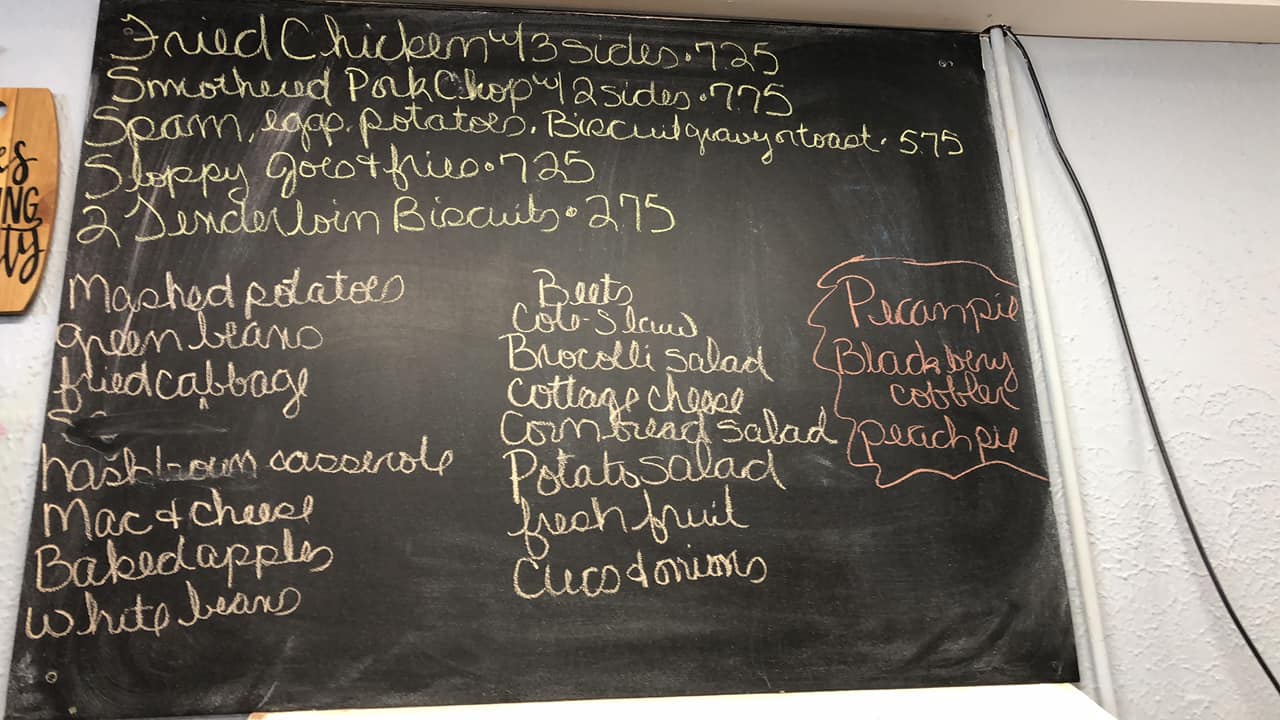 Fried Chicken w/3 sides • 725
Smothered Pork Chop w/2 sides • 7.75
Spam, eggs, potatoes, Biscuit gravy or toast • 5.75
Sloppy Joes & fries • 725
2 Tenderloin Biscuits • 275
Mashed potatoes
green beans
fried cabbage
hashbrown casserole
Mac & cheese
Baked apples
white beans
Beets
Cole-Slaw
Brocolli salad
cottage cheese
Cornbread salad
Potato salad
fresh fruit
Cucs & onions
Pecan pie
Blackbery
cobbler
peach pie
NG
ty